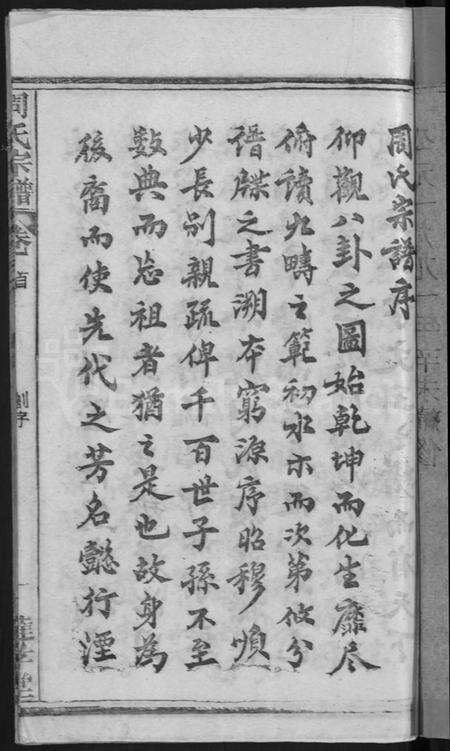 周氏宗譜序
仰觀八卦之圖始乾坤而化生靡尽
俯讀九疇之範初水木而次第攸分
譜牒之書溯本窮源序昭穆順
少長别親疏俾千百世子孫不至
數典而忘祖者猶之是也故身為
後裔而使先代之芳名懿行湮
周氏宗譜 卷首